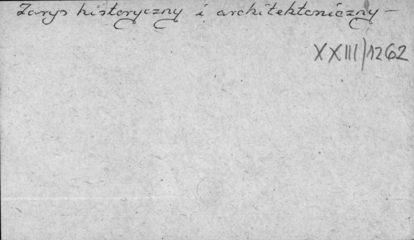 Zarys historyczny i architektoniczny –
XXIII/1262